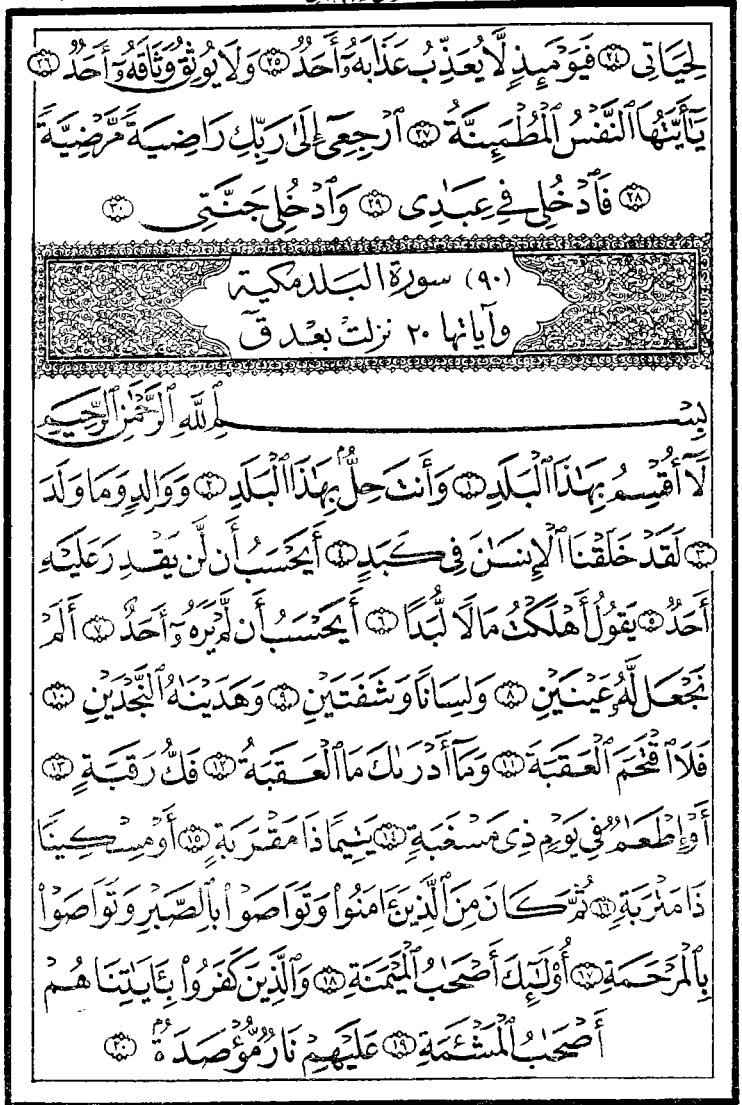 لِحَيَاتِى ٢٤ فَيَوْمَئِذٍ لَّا يُعَذِّبُ عَذَابَهُۥٓ أَحَدٌ ٢٥ وَلَا يُوثِقُ وَثَاقَهُۥٓ أَحَدٌ ٢٦
يَٰٓأَيَّتُهَا ٱلنَّفْسُ ٱلْمُطْمَئِنَّةُ ٢٧ ٱرْجِعِىٓ إِلَىٰ رَبِّكِ رَاضِيَةً مَّرْضِيَّةً
٢٨ فَٱدْخُلِى فِى عِبَٰدِى ٢٩ وَٱدْخُلِى جَنَّتِى ٣٠
(٩٠) سورة البلد مكية
وآياتها ٢٠ نزلت بعد قٓ
بِسْمِ ٱللَّهِ ٱلرَّحْمَٰنِ ٱلرَّحِيمِ
لَآ أُقْسِمُ بِهَٰذَا ٱلْبَلَدِ ١ وَأَنتَ حِلٌّۢ بِهَٰذَا ٱلْبَلَدِ ٢ وَوَالِدٍ وَمَا وَلَدَ
٣ لَقَدْ خَلَقْنَا ٱلْإِنسَٰنَ فِى كَبَدٍ ٤ أَيَحْسَبُ أَن لَّن يَقْدِرَ عَلَيْهِ
أَحَدٌ ٥ يَقُولُ أَهْلَكْتُ مَالًا لُّبَدًا ٦ أَيَحْسَبُ أَن لَّمْ يَرَهُۥٓ أَحَدٌ ٧ أَلَمْ
نَجْعَل لَّهُۥ عَيْنَيْنِ ٨ وَلِسَانًا وَشَفَتَيْنِ ٩ وَهَدَيْنَٰهُ ٱلنَّجْدَيْنِ ١٠
فَلَا ٱقْتَحَمَ ٱلْعَقَبَةَ ١١ وَمَآ أَدْرَىٰكَ مَا ٱلْعَقَبَةُ ١٢ فَكُّ رَقَبَةٍ ١٣
أَوْ إِطْعَٰمٌ فِى يَوْمٍ ذِى مَسْغَبَةٍ ١٤ يَتِيمًا ذَا مَقْرَبَةٍ ١٥ أَوْ مِسْكِينًا
ذَا مَتْرَبَةٍ ١٦ ثُمَّ كَانَ مِنَ ٱلَّذِينَ ءَامَنُوا۟ وَتَوَاصَوْا۟ بِٱلصَّبْرِ وَتَوَاصَوْا۟
بِٱلْمَرْحَمَةِ ١٧ أُو۟لَٰٓئِكَ أَصْحَٰبُ ٱلْمَيْمَنَةِ ١٨ وَٱلَّذِينَ كَفَرُوا۟ بِـَٔايَٰتِنَا هُمْ
أَصْحَٰبُ ٱلْمَشْـَٔمَةِ ١٩ عَلَيْهِمْ نَارٌ مُّؤْصَدَةٌۢ ٢٠